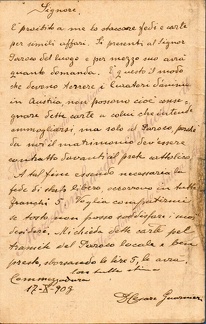 Signore,
È proibito a me lo staccare fedi e carte
per simili affari. Si presenti al Signor
Parroco del luogo e per mezzo suo avrà
quanto domanda. È questo il modo
che devono tenere i Curatori d'anime
in Austria non possono cioè conse-
gnare dette carte a colui che intende
ammogliarsi ma solo al Parroco perchè
da noi il matrimonio dev'essere
contratto davanti al prete cattolico.
A tal fine essendo necessaria la
fede di stato libero occorrono in tutto
franchi 5. Voglia compatirmi
se tosto non posso soddisfare i suoi
desideri. Mi chieda dette carte pel
tramite del Parroco locale e ben
presto, sborsando le lire 5, le avrà.
Con tutta stima
Commezzadura
17-X-909
D. Cesare Guarnieri